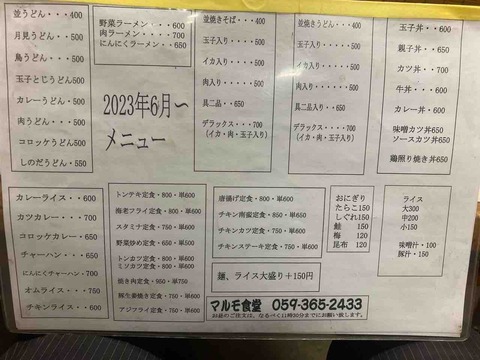 並うどん・・400
月見うどん・・500
鳥うどん・・・500
玉子とじうどん500
カレーうどん・500
肉うどん・・・500
コロッケうどん500
しのだうどん・550
野菜ラーメン・・600
肉ラーメン・・・700
にんにくラーメン・650
2023年6月〜
メニュー
並焼きそば・・400
玉子入り・・・500
イカ入り・・・500
肉入り・・・・500
具二品・・650
デラックス・・・700
(イカ・肉・玉子入り)
並焼きうどん・・400
玉子入り・・・・500
イカ入り・・・・500
肉入り・・・・・500
具二品入り・・650
デラックス・・・700
(イカ・肉・玉子入り)
玉子丼・・600
親子丼・・650
カツ丼・・700
牛丼・・・600
カレー丼・・600
味噌カツ丼650
ソースカツ丼650
鶏照り焼き丼650
カレーライス・・600
カツカレー・・・700
コロッケカレー・700
チャーハン・・・650
にんにくチャーハン・700
オムライス・・・700
チキンライス・・600
トンテキ定食・800・単600
海老フライ定食・800・単600
スタミナ定食・750・単600
野菜炒め定食・650・単500
トンカツ定食・800・単600
ミソカツ定食・800・単600
焼き肉定食・950・単750
豚生姜焼き定食・750・単600
アジフライ定食・750・単600
唐揚げ定食・・800・単600
チキン南蛮定食・850・単650
チキンカツ定食・750・単600
チキンステーキ定食・750・単600
麺、ライス大盛り＋150円
おにぎり
たらこ150
しぐれ150
鮭　150
梅　120
昆布　120
ライス
大300
中200
小150
味噌汁・100
豚汁・・150
マルモ食堂　059-365-2433
お昼のご注文は、なるべく11時30分までにお願い致します。